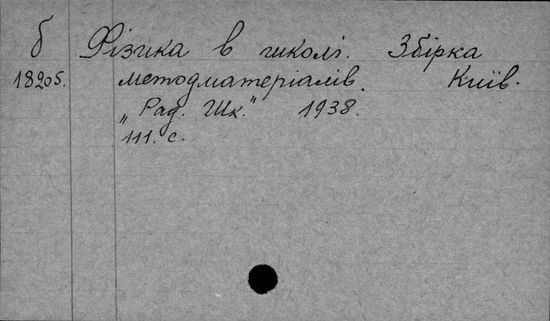 б Фізика в школі. Збірка
18205. методматеріалів. Київ.
„Рад. Шк." 1938.
111. с.